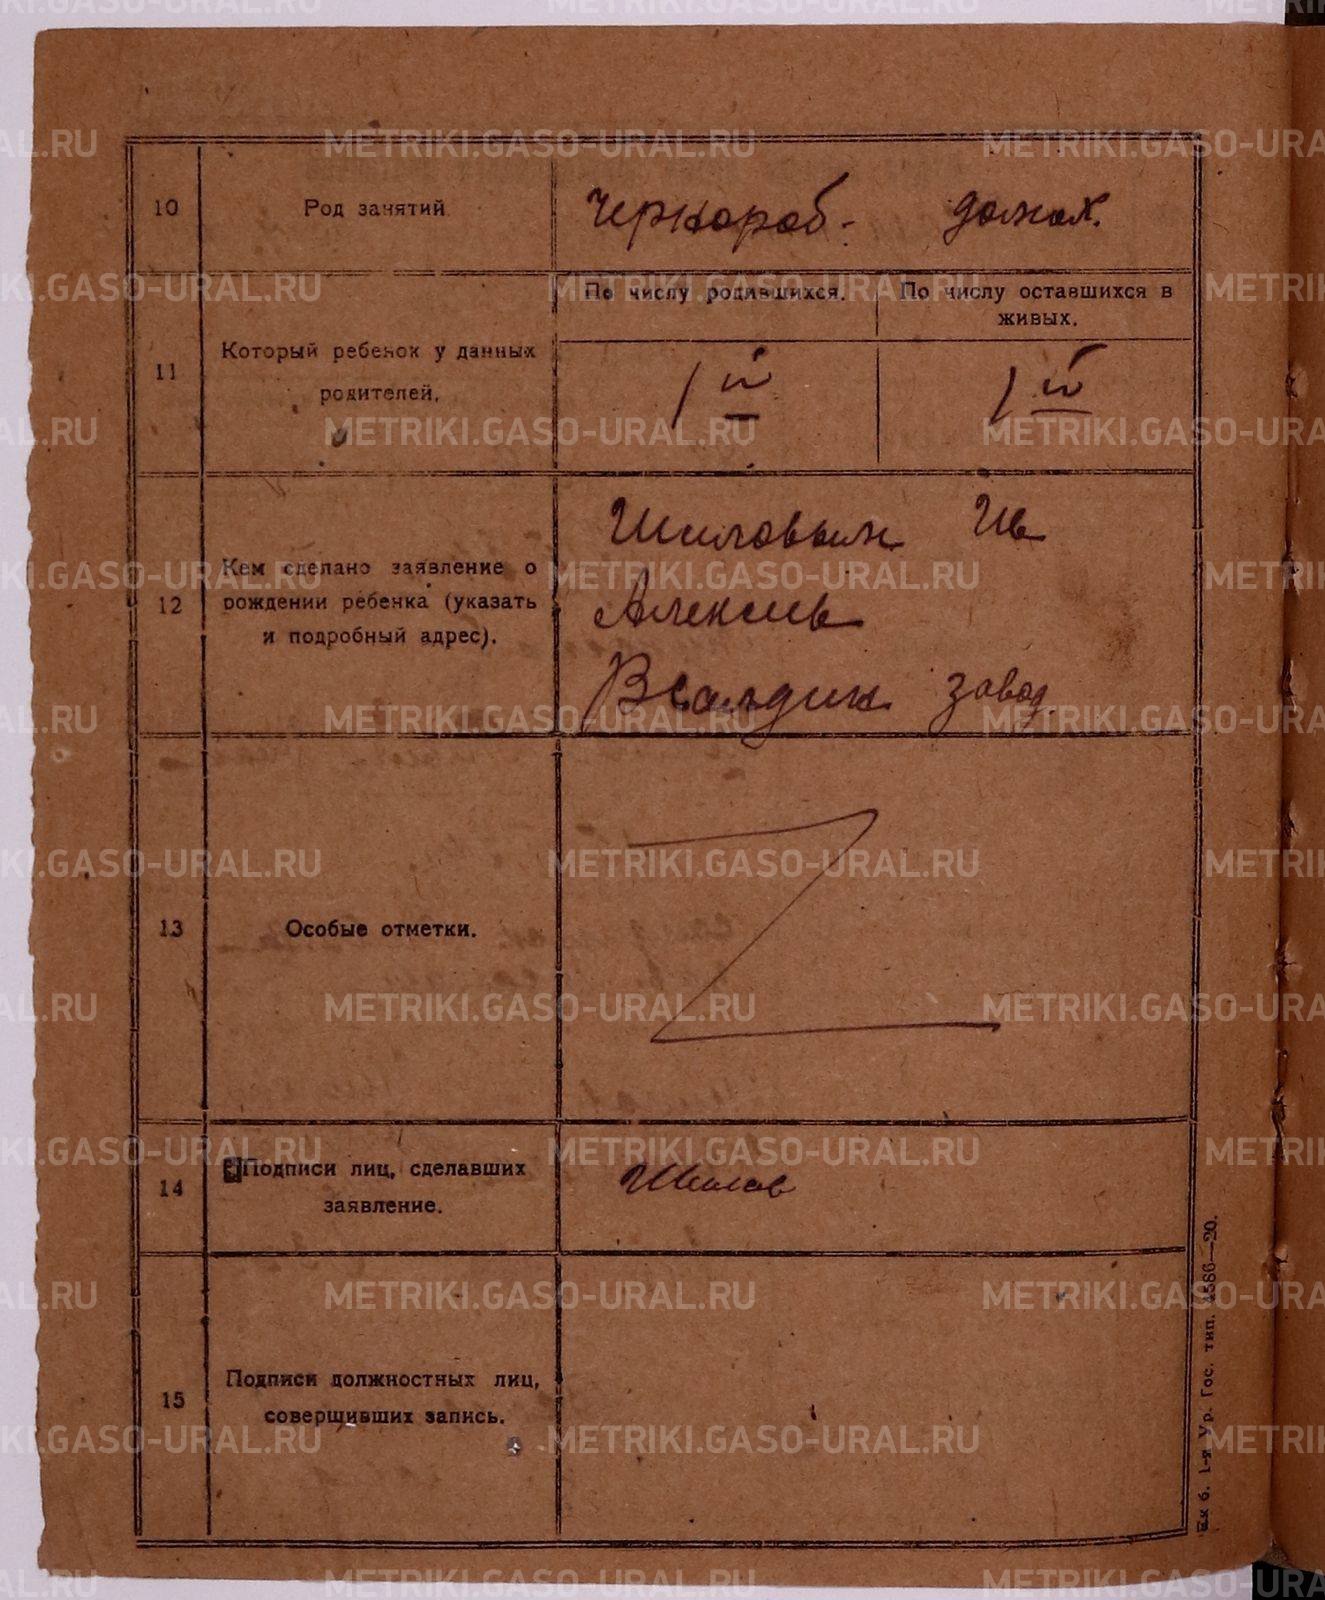 10
Род занятий
Чернораб. домох.
11
Который ребенок у данных
родителей.
По числу родившихся.
1й
По числу оставшихся в
живых.
1й
12
Кем сделано заявление о
рождении ребенка (указать
и подробный адрес).
Шиловым Ив
Алексеев
завод.
13
Особые отметки.
14
Подписи лиц, сделавших
заявление.
Шилов
15
Подписи должностных лиц,
совершивших запись.
б. 1-я Ур. Гос. тип. 1586—20.
METRIKI.GASO-URAL.RU